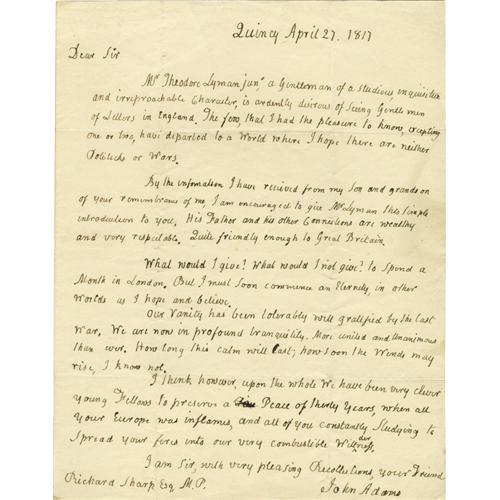 Quincy April 27. 1817
Dear Sir
Mr Theodore Lyman junr, a Gentleman of a studious inquisitive
and irreproachable Character, is ardently desirous of seeing Gentlemen
of Letters in England. The few, that I had the pleasure to know, excepting
one or two, have departed to a World where I hope there are neither
Politicks or Wars.
By the information I have recieved from my Son and grandson
of your remembrance of me, I am encouraged to give Mr Lyman this simple
introduction to you. His Father and his other Connections are wealthy
and very respectable. Quite friendly enough to Great Britain.
What would I give? What would I not give? to spend a
Month in London. But I must soon commence an Eternity, in other
Worlds as I hope and believe.
Our Vanity has been tolerably well gratified by the last
War. We are now in profound tranquility. More united and Unanimous
than ever. How long this calm will last; how soon the Winds may
rise, I know not.
I think however, upon the whole We have been very clever
young Fellows to preserve a Peace of thirty Years, when all
your Europe was inflames, and all of you constantly Studying to
Spread your fires into our very combustible Wilderness.
I am Sir, with very pleasing Recollections, your Friend
Richard Sharp Esq. M.P. John Adams